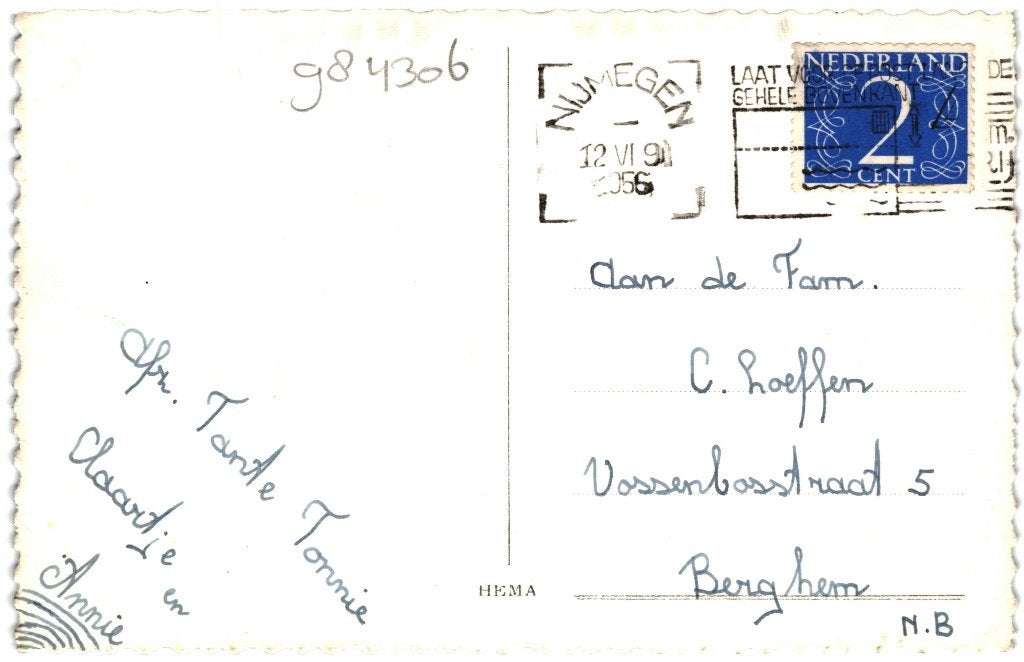 984306
NIJMEGEN
12 VI 9
1956
LAAT
GEHELE BOVENKANT
DE
NEDERLAND
2
CENT
Aan de Fam.
C. Loeffen
Vossenbosstraat 5
Berghem
N.B
HEMA
Afz. Tante Tonnie
Claartje en
Annie